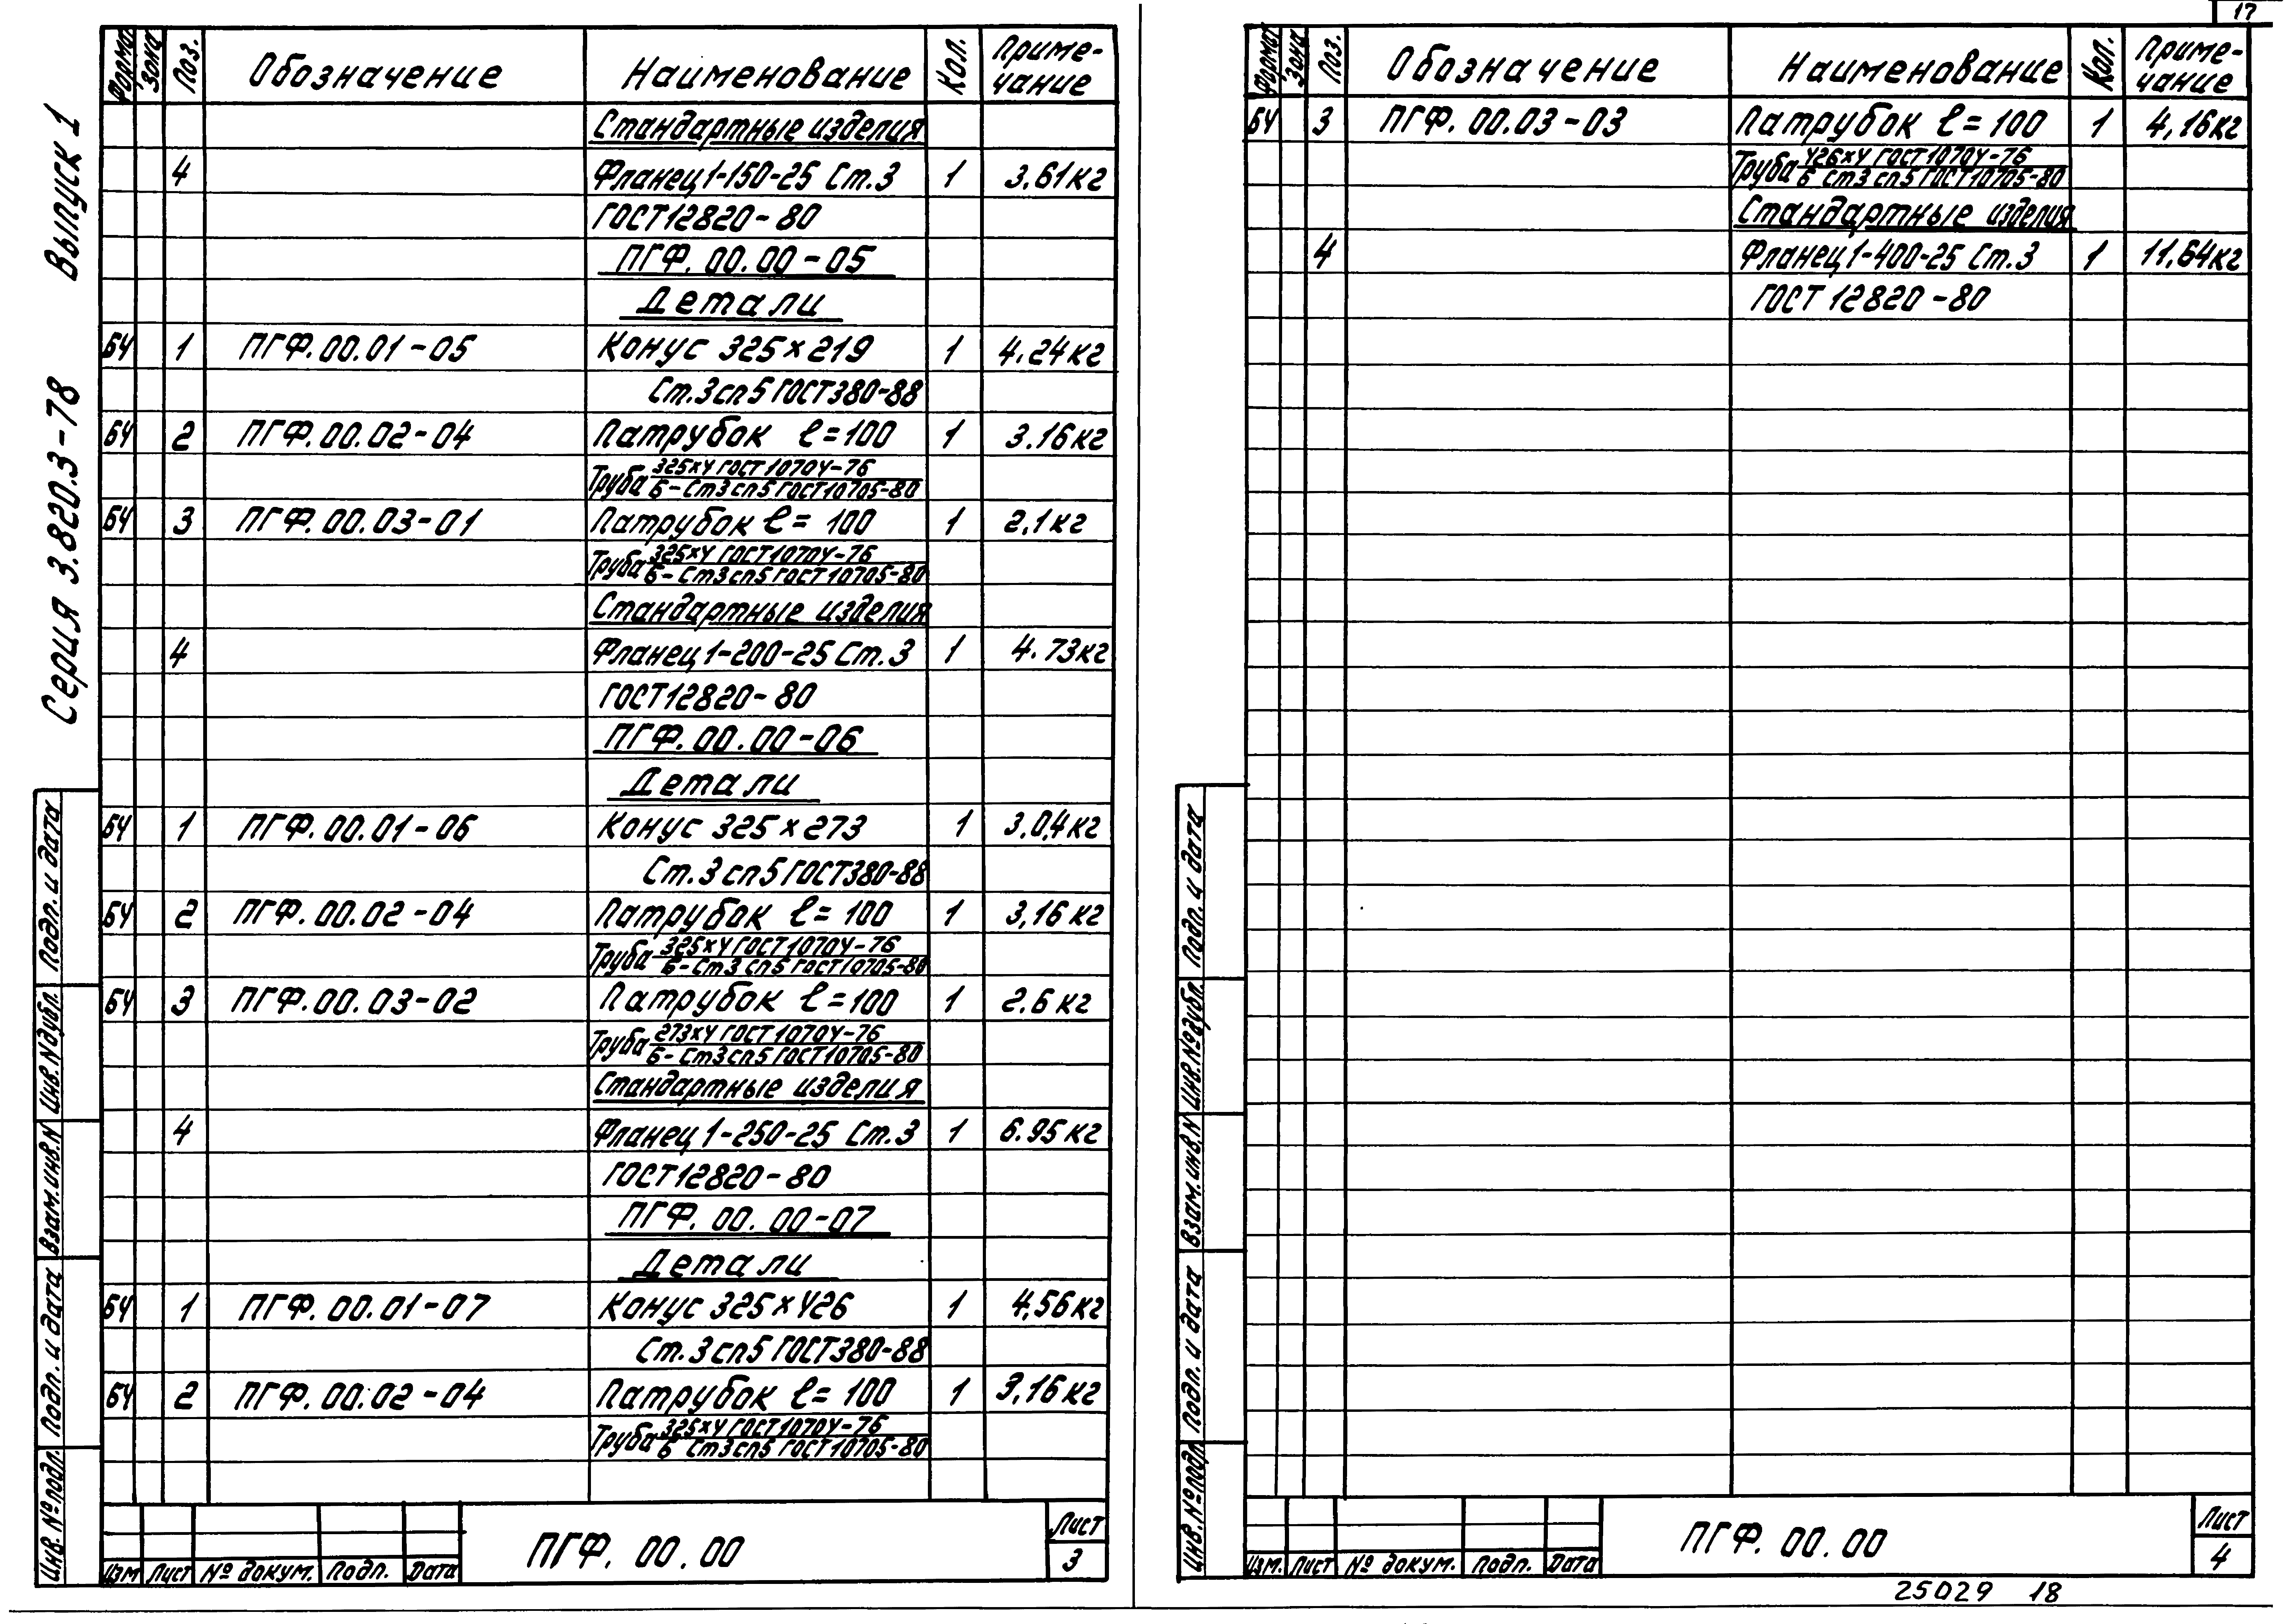 17
Серия 3.820.3-78 Выпуск 1
Формат Зона Поз. Обозначение Наименование Кол. Приме-чание
Стандартные изделия
4 Фланец 1-150-25 Ст.3 1 3,61кг
ГОСТ12820-80
ПГФ. 00.00-05
Детали
БЧ 1 ПГФ.00.01-05 Конус 325×219 1 4.24кг
Ст.3сп5 ГОСТ380-88
БЧ 2 ПГФ.00.02-04 Патрубок ℓ=100 1 3.16кг
Труба 325х4 ГОСТ 10704-76
Б-Ст3сп5 ГОСТ10705-80
БЧ 3 ПГФ.00.03-01 Патрубок ℓ= 100 1 2,1кг
Труба 325х4 ГОСТ10704-76
Б-Ст3сп5 ГОСТ10705-80
Стандартные изделия
4 Фланец 1-200-25 Ст.3 1 4.73кг
ГОСТ12820-80
ПГФ.00.00-06
Детали
БЧ 1 ПГФ.00.01-06 Конус 325×273 1 3,04кг
Ст.3сп5 ГОСТ380-88
БЧ 2 ПГФ.00.02-04 Патрубок ℓ= 100 1 3,16кг
Труба 325х4 ГОСТ10704-76
Б-Ст3 сп5 ГОСТ10705-80
БЧ 3 ПГФ.00.03-02 Патрубок ℓ=100 1 2.6кг
Труба 273х4 ГОСТ 10704-76
Б-Ст3сп5 ГОСТ10705-80
Стандартные изделия
4 Фланец 1-250-25 Ст.3 1 6.95кг
ГОСТ12820-80
ПГФ. 00. 00-07
Детали
БЧ 1 ПГФ. 00.01-07 Конус 325×426 1 4,56кг
Ст.3сп5 ГОСТ380-88
БЧ 2 ПГФ. 00.02-04 Патрубок ℓ= 100 1 3,16кг
Труба 325х4 ГОСТ10704-76
Б Ст3сп5 ГОСТ10705-80
Инв.№подл. Подп. и дата Взам.инв.N Инв.N дубл. Подп. и дата
Изм Лист № докум. Подп. Дата
ПГФ. 00.00
Лист
3
Формат Зона Поз. Обозначение Наименование Кол. Приме-чание
БЧ 3 ПГФ. 00.03-03 Патрубок ℓ=100 1 4,16кг
Труба 426х4 ГОСТ10704-76
Б Ст3 сп5 ГОСТ10705-80
Стандартные изделия
4 Фланец 1-400-25 Ст.3 1 11,64кг
ГОСТ 12820-80
Инв.№подл. Подп. и дата Взам.инв.N Инв.№дубл. Подп. и дата
Изм. Лист № докум. Подп. Дата
ПГФ. 00.00
Лист
4
25029 18